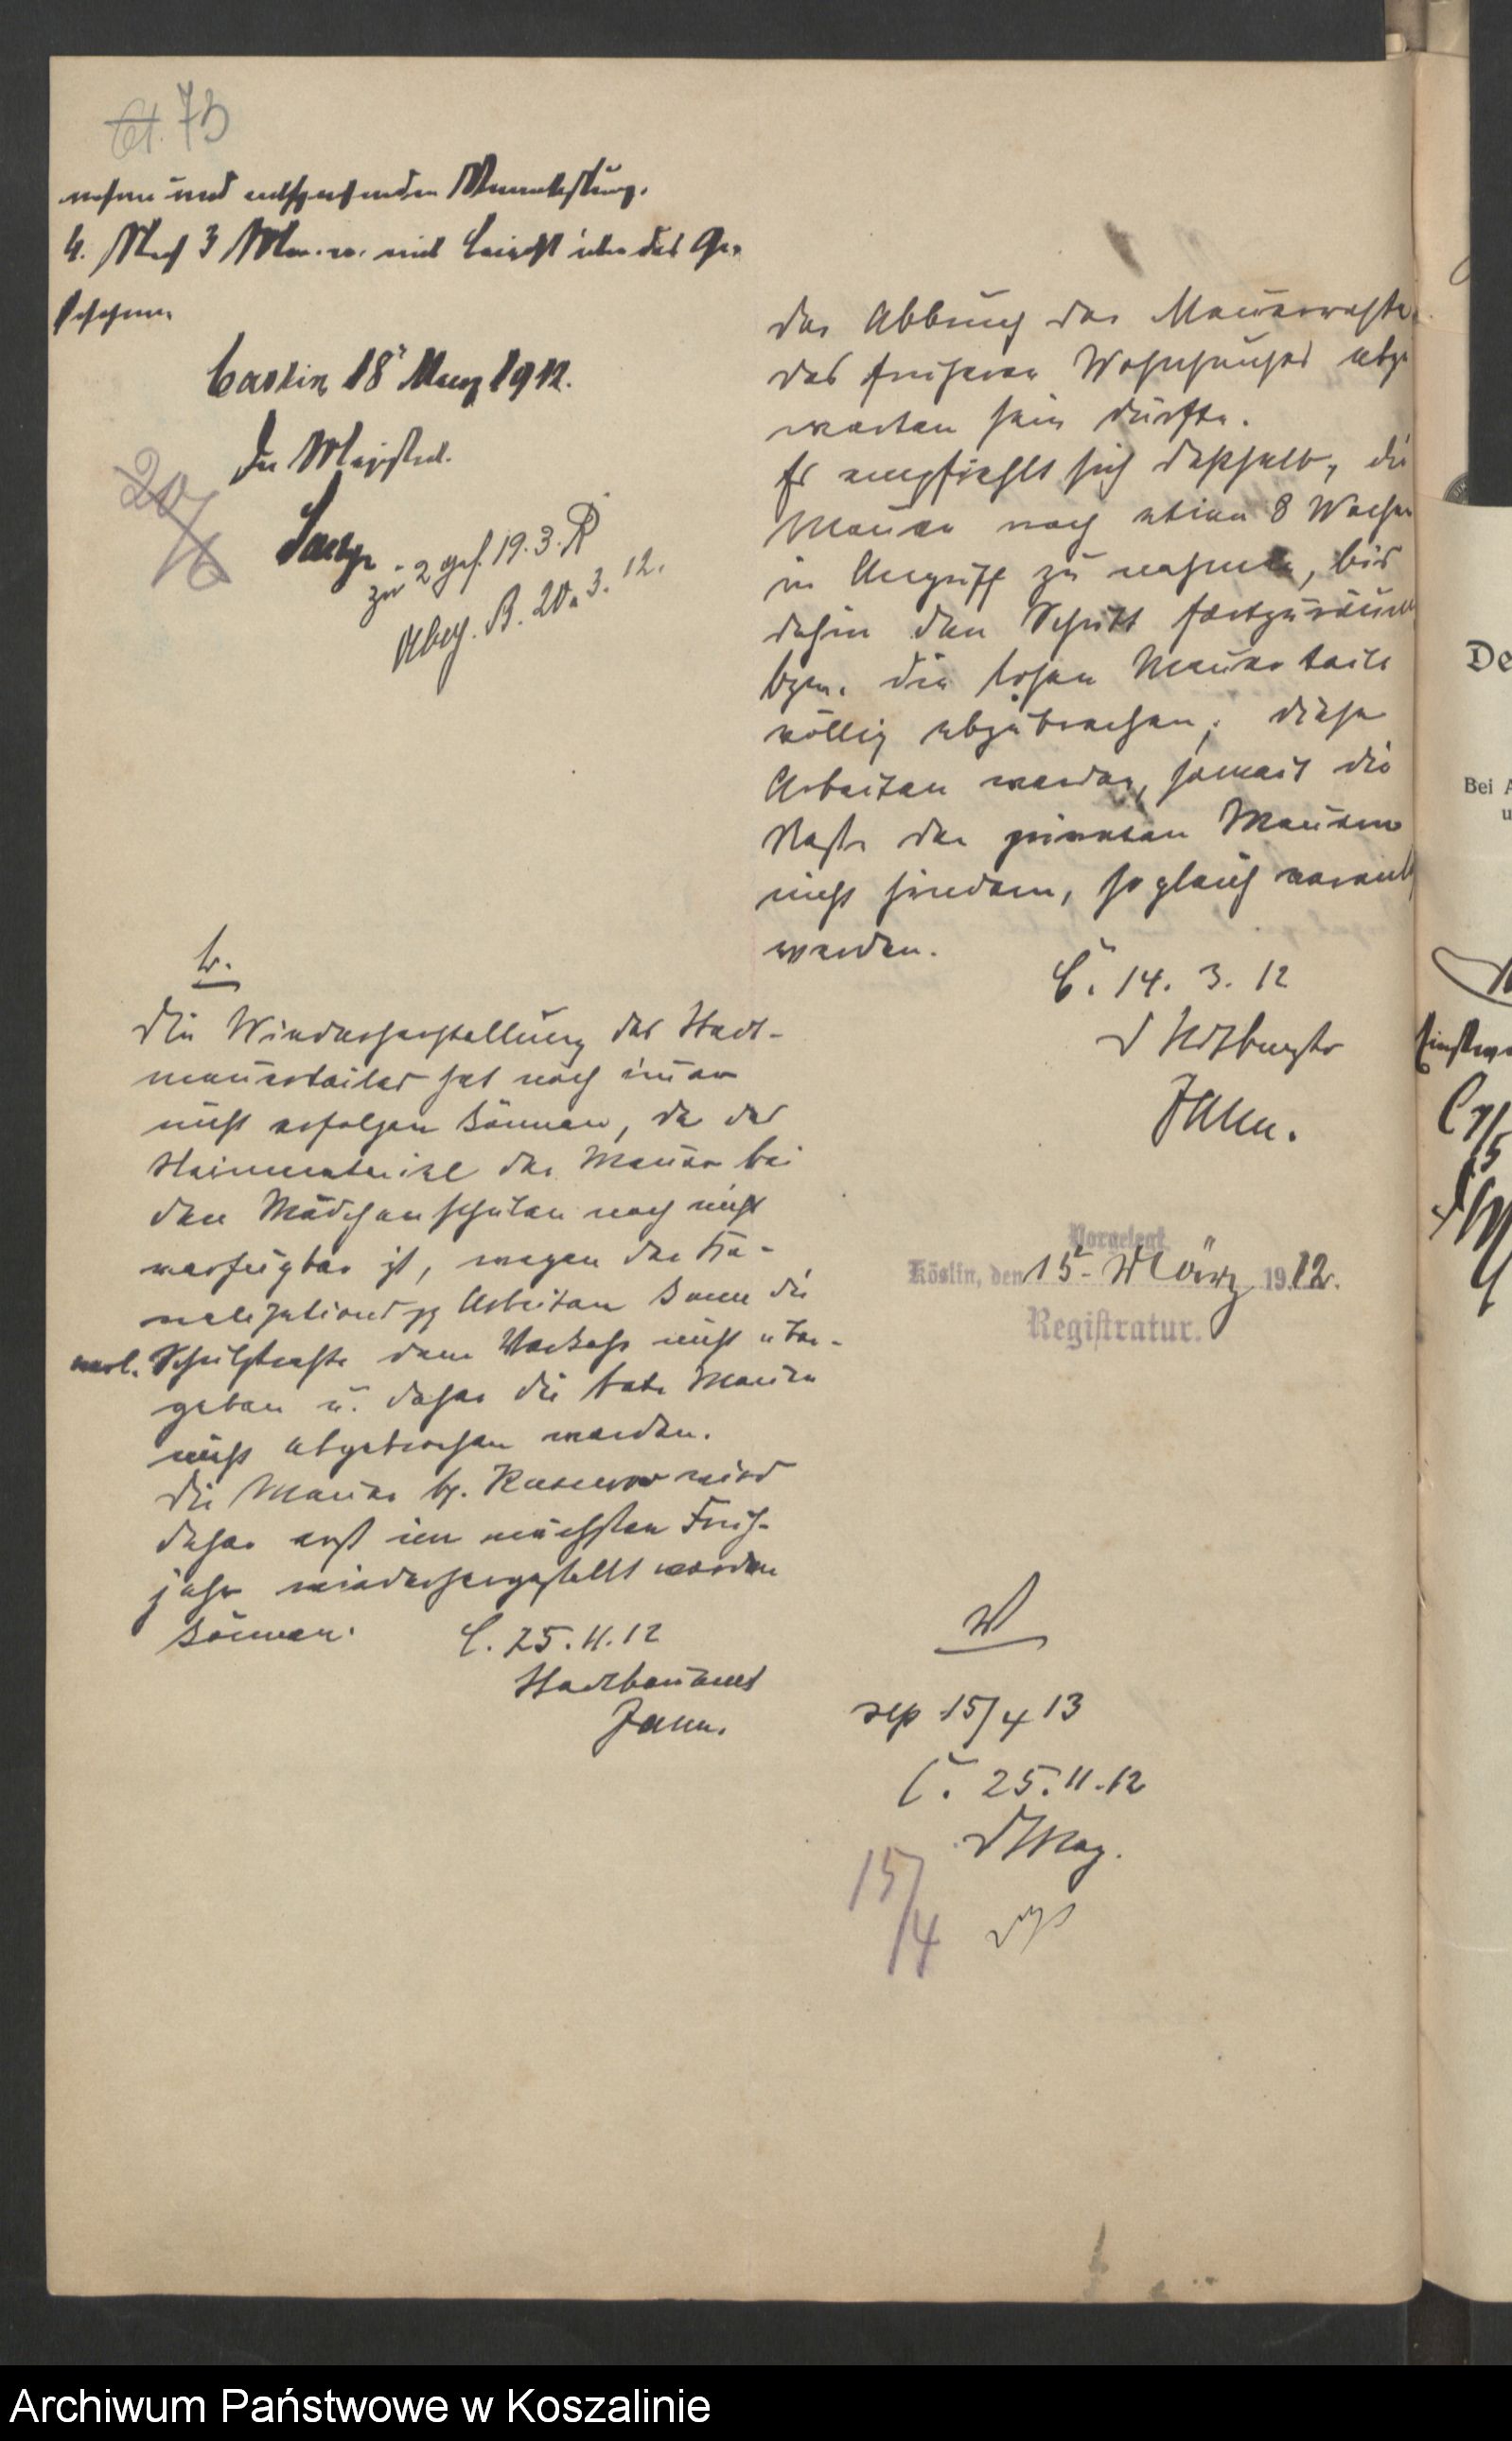 73
nahme und entsprechenden Veranlassung.
4. Nach 3 Mon. w. mit Bericht über das Ge-
schehene
Coeslin 18 März 1912.
Der Magistrat.
20/6
zu 2 gef. 19.3. R
Abg. B. 20.3.12.
der Abbruch der Mauerreste
des früheren Wohnhauses abzu
warten sein dürfte.
Es empfiehlt sich deßhalb, die
Mauer nach etwa 8 Wochen
in Angriff zu nehmen, bis
dahin den Schutt fortzuräumen
bzw. die losen Mauerteile
völlig abzubrechen; diese
Arbeiten werden, soweit die
Reste der privaten Mauern
nicht hindern, sogleich veranlaßt
werden.
C. 14. 3. 12
d Stdtbaumstr
Jahn.
Vorgelegt
Köslin, den 15. März 1912.
Registratur.
br.
Die Wiederherstellung des Stadt-
mauerteiles hat noch immer
nicht erfolgen können, da das
Steinmaterial der Mauer bei
den Mädchenschulen noch nicht
verfügbar ist, wegen der Ka-
nalisations pp Arbeiten kann die
verl. Schulstraße dem Verkehr nicht über-
geben u. daher die alte Mauer
nicht abgebrochen werden.
Die Mauer bz. wird
daher erst im nächsten Früh-
jahr wiederhergestellt werden
können.
C. 25.11.12
Stadtbauamt
Jahn.
V
rep 15/4 13
C. 25.11.12
d Mag.
15/4
De
Bei A
u
Archiwum Państwowe w Koszalinie